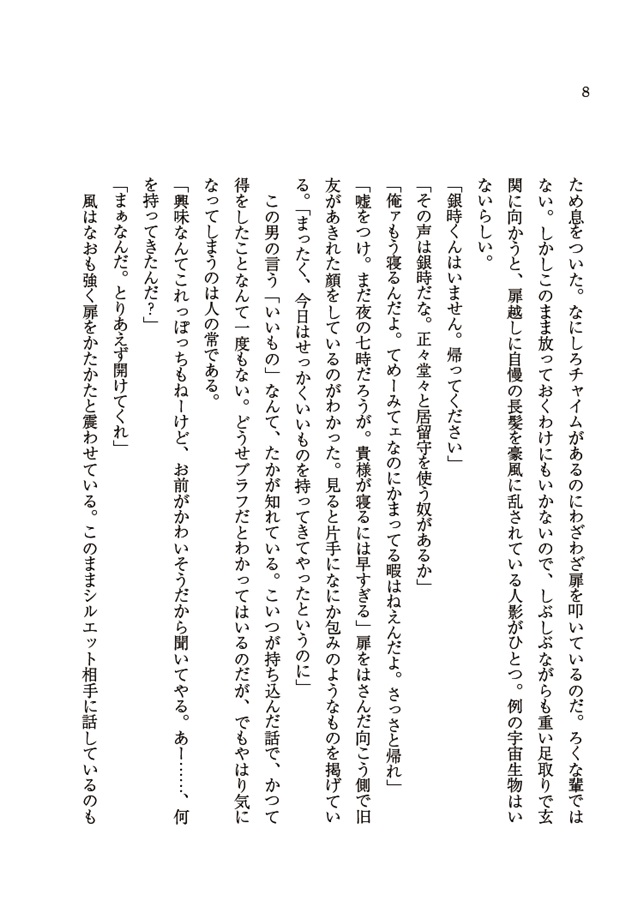 8
ため息をついた。なにしろチャイムがあるのにわざわざ扉を叩いているのだ。ろくな輩では
ない。しかしこのまま放っておくわけにもいかないので、しぶしぶながらも重い足取りで玄
関に向かうと、扉越しに自慢の長髪を豪風に乱されている人影がひとつ。例の宇宙生物はい
ないらしい。
「銀時くんはいません。帰ってください」
「その声は銀時だな。正々堂々と居留守を使う奴があるか」
「俺ァもう寝るんだよ。てめーみてェなのにかまってる暇はねえんだよ。さっさと帰れ」
「嘘をつけ。まだ夜の七時だろうが。貴様が寝るには早すぎる」扉をはさんだ向こう側で旧
友があきれた顔をしているのがわかった。見ると片手になにか包みのようなものを掲げてい
る。「まったく、今日はせっかくいいものを持ってきてやったというのに」
この男の言う「いいもの」なんて、たかが知れている。こいつが持ち込んだ話で、かつて
得をしたことなんて一度もない。どうせブラフだとわかってはいるのだが、でもやはり気に
なってしまうのは人の常である。
「興味なんてこれっぽっちもねーけど、お前がかわいそうだから聞いてやる。あー……、何
を持ってきたんだ？」
「まぁなんだ。とりあえず開けてくれ」
風はなおも強く扉をかたかたと震わせている。このままシルエット相手に話しているのも